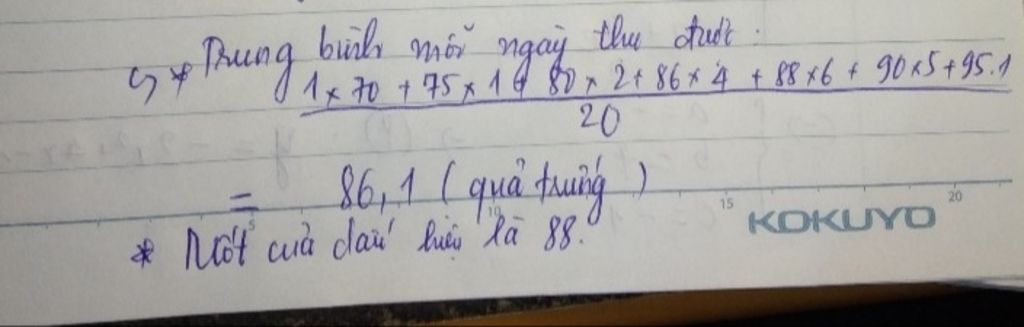 c, * Trung bình mỗi ngày thu được :
1 x 70 + 75 x 1 + 80 x 2 + 86 x 4 + 88 x 6 + 90 x 5 + 95.1
20
= 86,1 ( quả trứng )
15 KOKUYO 20
* Mốt của dấu hiệu là 88.